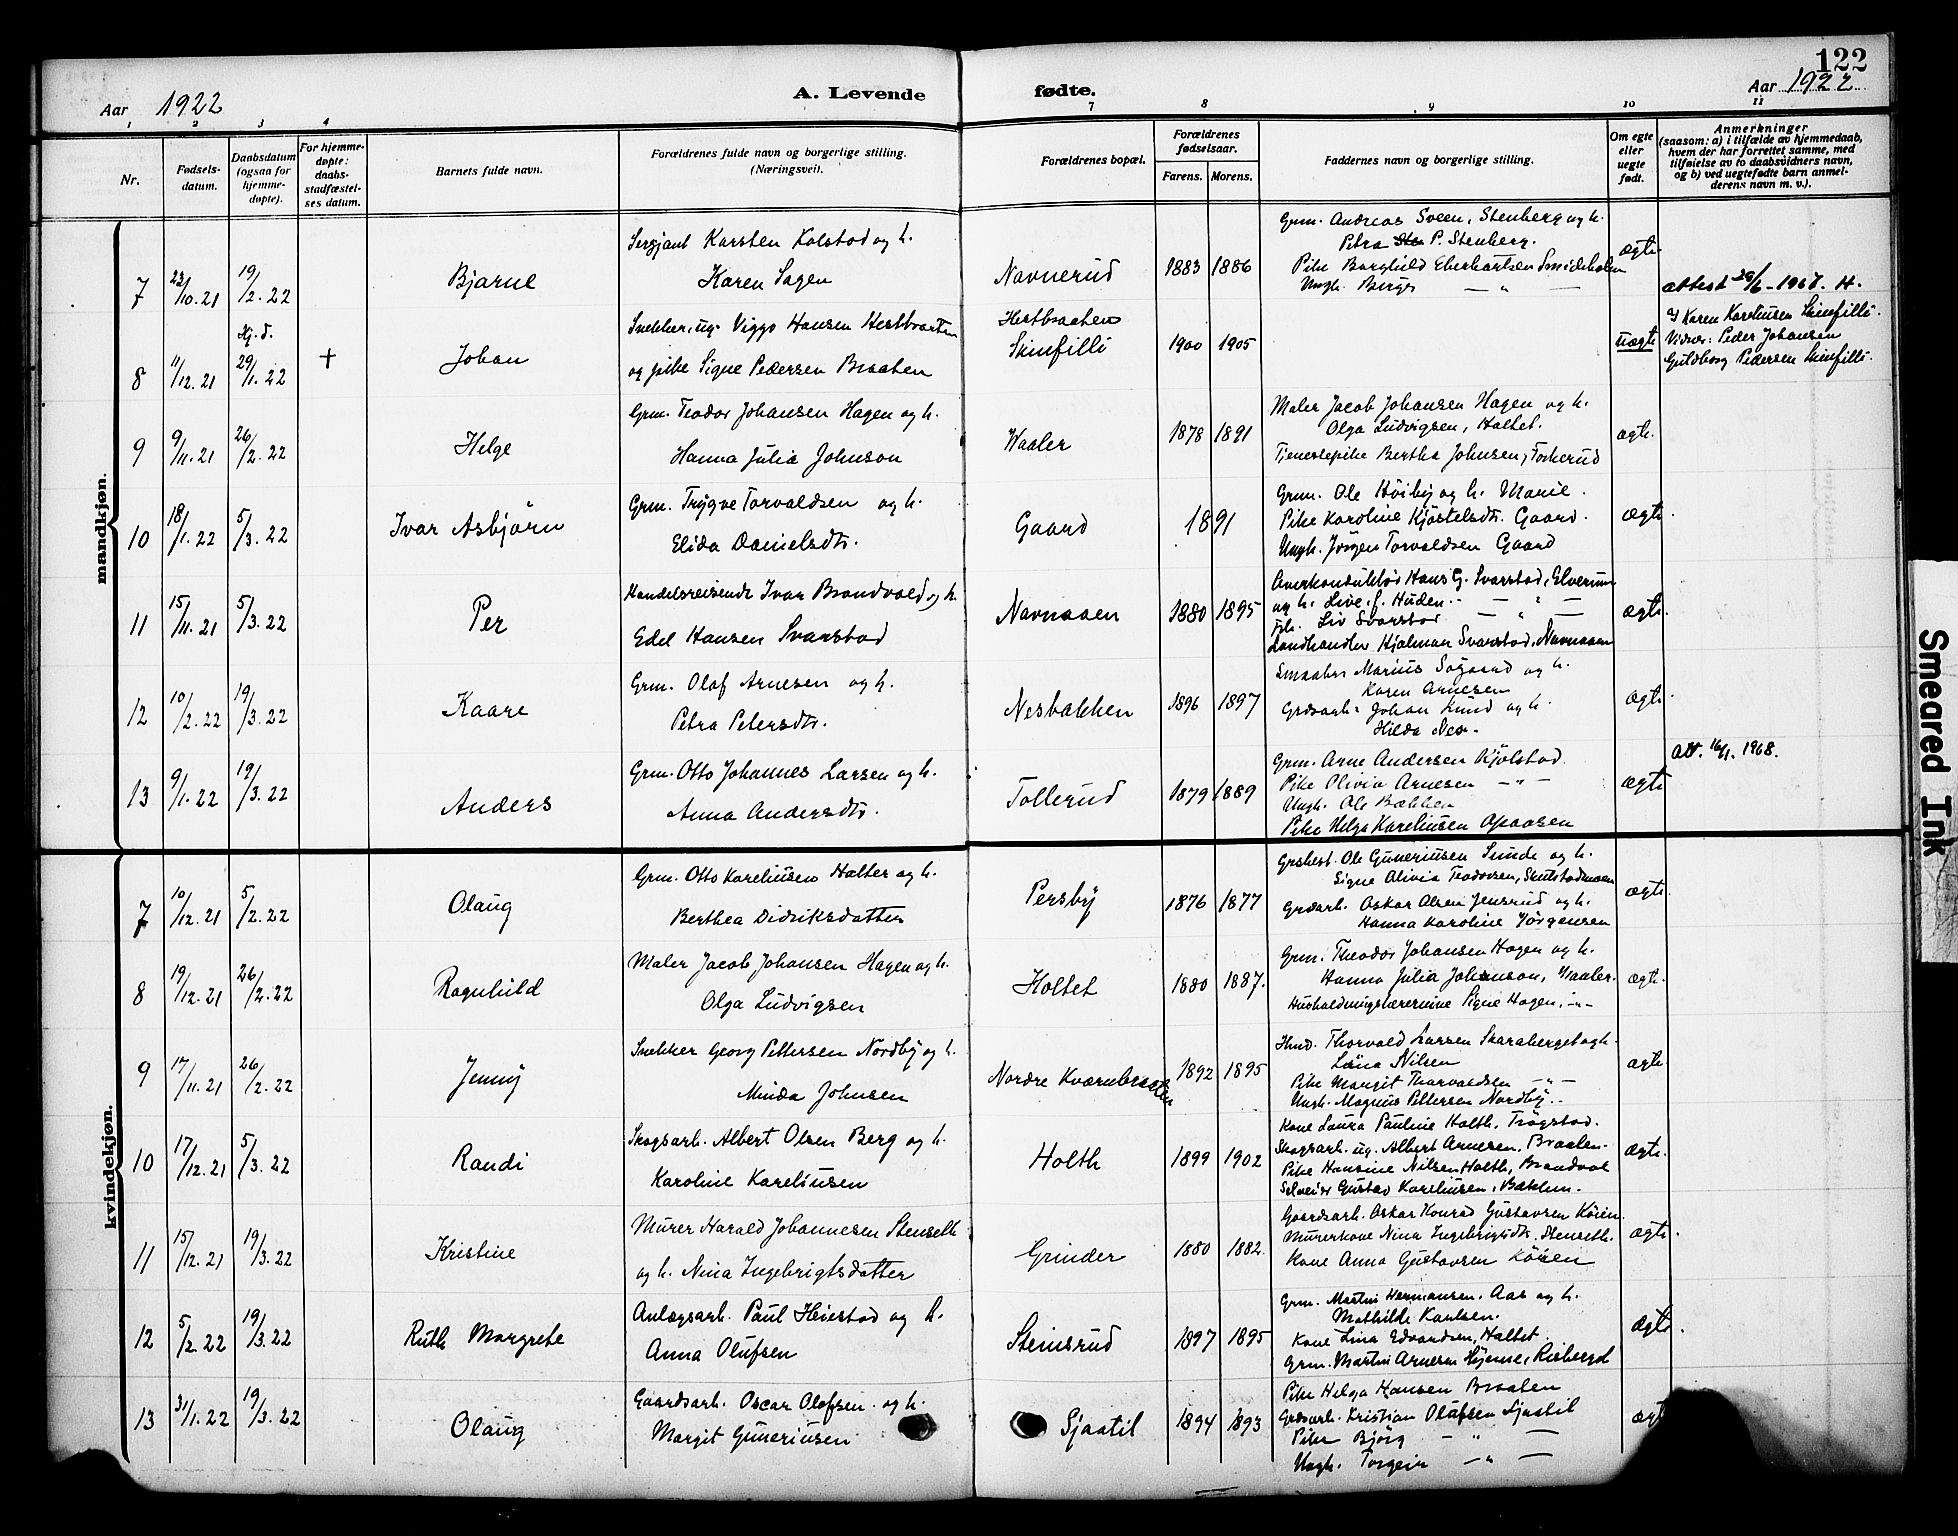 122
Aar 1922
A. Levende fødte.
Aar 1922
1 2 3 4 7 8 9 10 11
Nr.
Fødsels-
datum.
Daabsdatum
(ogsaa for
hjemme-
døpte).
For hjemme-
døpte:
daabs-
stadfæstel-
ses datum.
Barnets fulde navn.
Forældrenes fulde navn og borgerlige stilling.
(Næringsvei).
Forældrenes bopæl.
Forældrenes
fødselsaar.
Farens. Morens.
Faddernes navn og borgerlige stilling.
Om egte
eller
uegte
født.
Anmerkninger
(saasom: a) i tilfælde av hjemmedaab,
hvem der har forrettet samme, med
tilføielse av to daabsvidners navn,
og b) ved uegtefødte barn anmel-
derens navn m. v.).
mandkjøn.
7 23/10.21 19/2.22 Bjarne
Sersjant Karsten Kolstad og h.
Karen Sagen
Navnerud 1883 1886
Grm. Andreas Sveen, Stenberg og h.
Petra P. Stenberg.
Pike Borghild Eberhartsen Smideholen
Ungk. Birger — " —
ægte
attest 29/6-1967. H.
8 11/12.21 Hj.d. 29/1.22 + Johan
Snekker, ug. Viggo Hansen Hestbraaten
og pike Signe Pedersen Braaten
Hestbraaten
Skinfilli 1900 1905
uægte
v/ Karen Kareliusen Skinfilli.
Vidner: Peder Johansen
Guldborg Pedersen Skinfilli.
9 9/11.21 26/2.22 Helge
Grm. Teodor Johansen Hagen og h.
Hanna Julia Johnson
Waaler 1878 1891
Maler Jacob Johansen Hagen og h.
Olga Ludvigsen, Holtet.
Tjenestepike Bertha Johnsen, Torkerud
ægte.
10 18/1.22 5/3.22 Ivar Asbjørn
Grm. Trygve Torvaldsen og h.
Elida Danielsdtr.
Gaard 1891
Grm. Ole Høiby og h. Marie.
Pike Karoline Kjøstelsdtr. Gaard.
Ungk. Jørgen Torvaldsen Gaard
ægte
11 15/11.21 5/3.22 Per
Handelsreisende Ivar Brandvold og h.
Edel Hansen Svarstad
Navnaaen 1880 1895
Overkonduktør Hans G. Svarstad, Elverum
og h. Live f. Huden. — " —
Frk. Liv Svarstad — " —
Landhandler Hjalmar Svarstad, Navnaaen
ægte.
12 10/2.22 19/3.22 Kaare
Grm. Olaf Arnesen og h.
Petra Petersdtr.
Nesbakken 1896 1897
Smaabr. Marius Søgaard og h.
Karen Arnesen
Grdsarb. Johan Lund og h.
Hilda Nes.
ægte.
13 9/1.22 19/3.22 Anders
Grm. Otto Johannes Larsen og h.
Anna Andersdtr.
Tollerud 1879 1889
Grm. Arne Andersen Kjølstad.
Pike Olivia Arnesen — " —
Ungk. Ole Bakken
Pike Helga Kareliusen Opaasen
ægte
att. 16/1. 1968.
kvindekjøn.
7 10/12.21 5/2.22 Olaug
Grm. Otto Kareliusen Halter og h.
Berthea Didriksdatter
Persby 1876 1877
Grdbest. Ole Guneriusen Sunde og h.
Signe Olivia Teodorsen, Skulstadmoen
Grdarb. Oskar Olsen Jensrud og h.
Hanna Karoline Jørgensen
ægte.
8 19/12.21 26/2.22 Ragnhild
Maler Jacob Johansen Hagen og h.
Olga Ludvigsen
Holtet 1880 1887.
Grm. Theodor Johansen Hagen og h.
Hanna Julia Johnson, Waaler.
Husholdningslærerinne Signe Hagen, -"-
ægte.
9 17/11.21 26/2.22 Jenny
Snekker Georg Pettersen Nordby og h.
Minda Johnsen
Nordre Kværnbraaten 1892 1895
Hmd. Thorvald Larsen Skaraberget og h.
Lina Nilsen
Pike Margit Thorvaldsen — " —
Ungk. Magnus Pettersen Nordby.
ægte
10 17/12.21 5/3.22 Randi
Skogsarb. Albert Olsen Berg og h.
Karoline Kareliusen
Holth 1899 1902
Kone Laura Pauline Holth, Trøgstad.
Skogsarb. ug. Albert Arnesen, Braaten.
Pike Hansine Nilsen Holth, Brandval
Selveier Gustav Kareliusen, Bakken.
ægte.
11 15/12.21 19/3.22 Kristine
Murer Harald Johannesen Stenseth
og h. Nina Ingebrigtsdatter
Grinder 1880 1882.
Gaardsarb. Oskar Konrad Gustavsen Køien
Murerkone Nina Ingebrigtsdtr. Stenseth.
Kone Anna Gustavsen Køien
ægte.
12 5/2.22 19/3.22 Ruth Margrete
Anlægsarb. Paul Heiestad og h.
Anna Olufsen
Stensrud 1897 1895
Grm. Martin Hermansen. Aas og h.
Mathilde Karlsen.
Kone Lina Edvardsen, Holtet.
Grm. Martin Arnesen Hjerne, Risberget
ægte.
13 31/1.22 19/3.22 Olaug
Gaardsarb. Oscar Olafsen og h.
Margit Guneriusen
Sjaatil 1894 1893
Pike Helga Hansen Braaten
Grdsarb. Kristian Olafsen Sjaatil
Pike Bjørg — " —
Ungk. Torgeir — " —
ægt
Smeared Ink